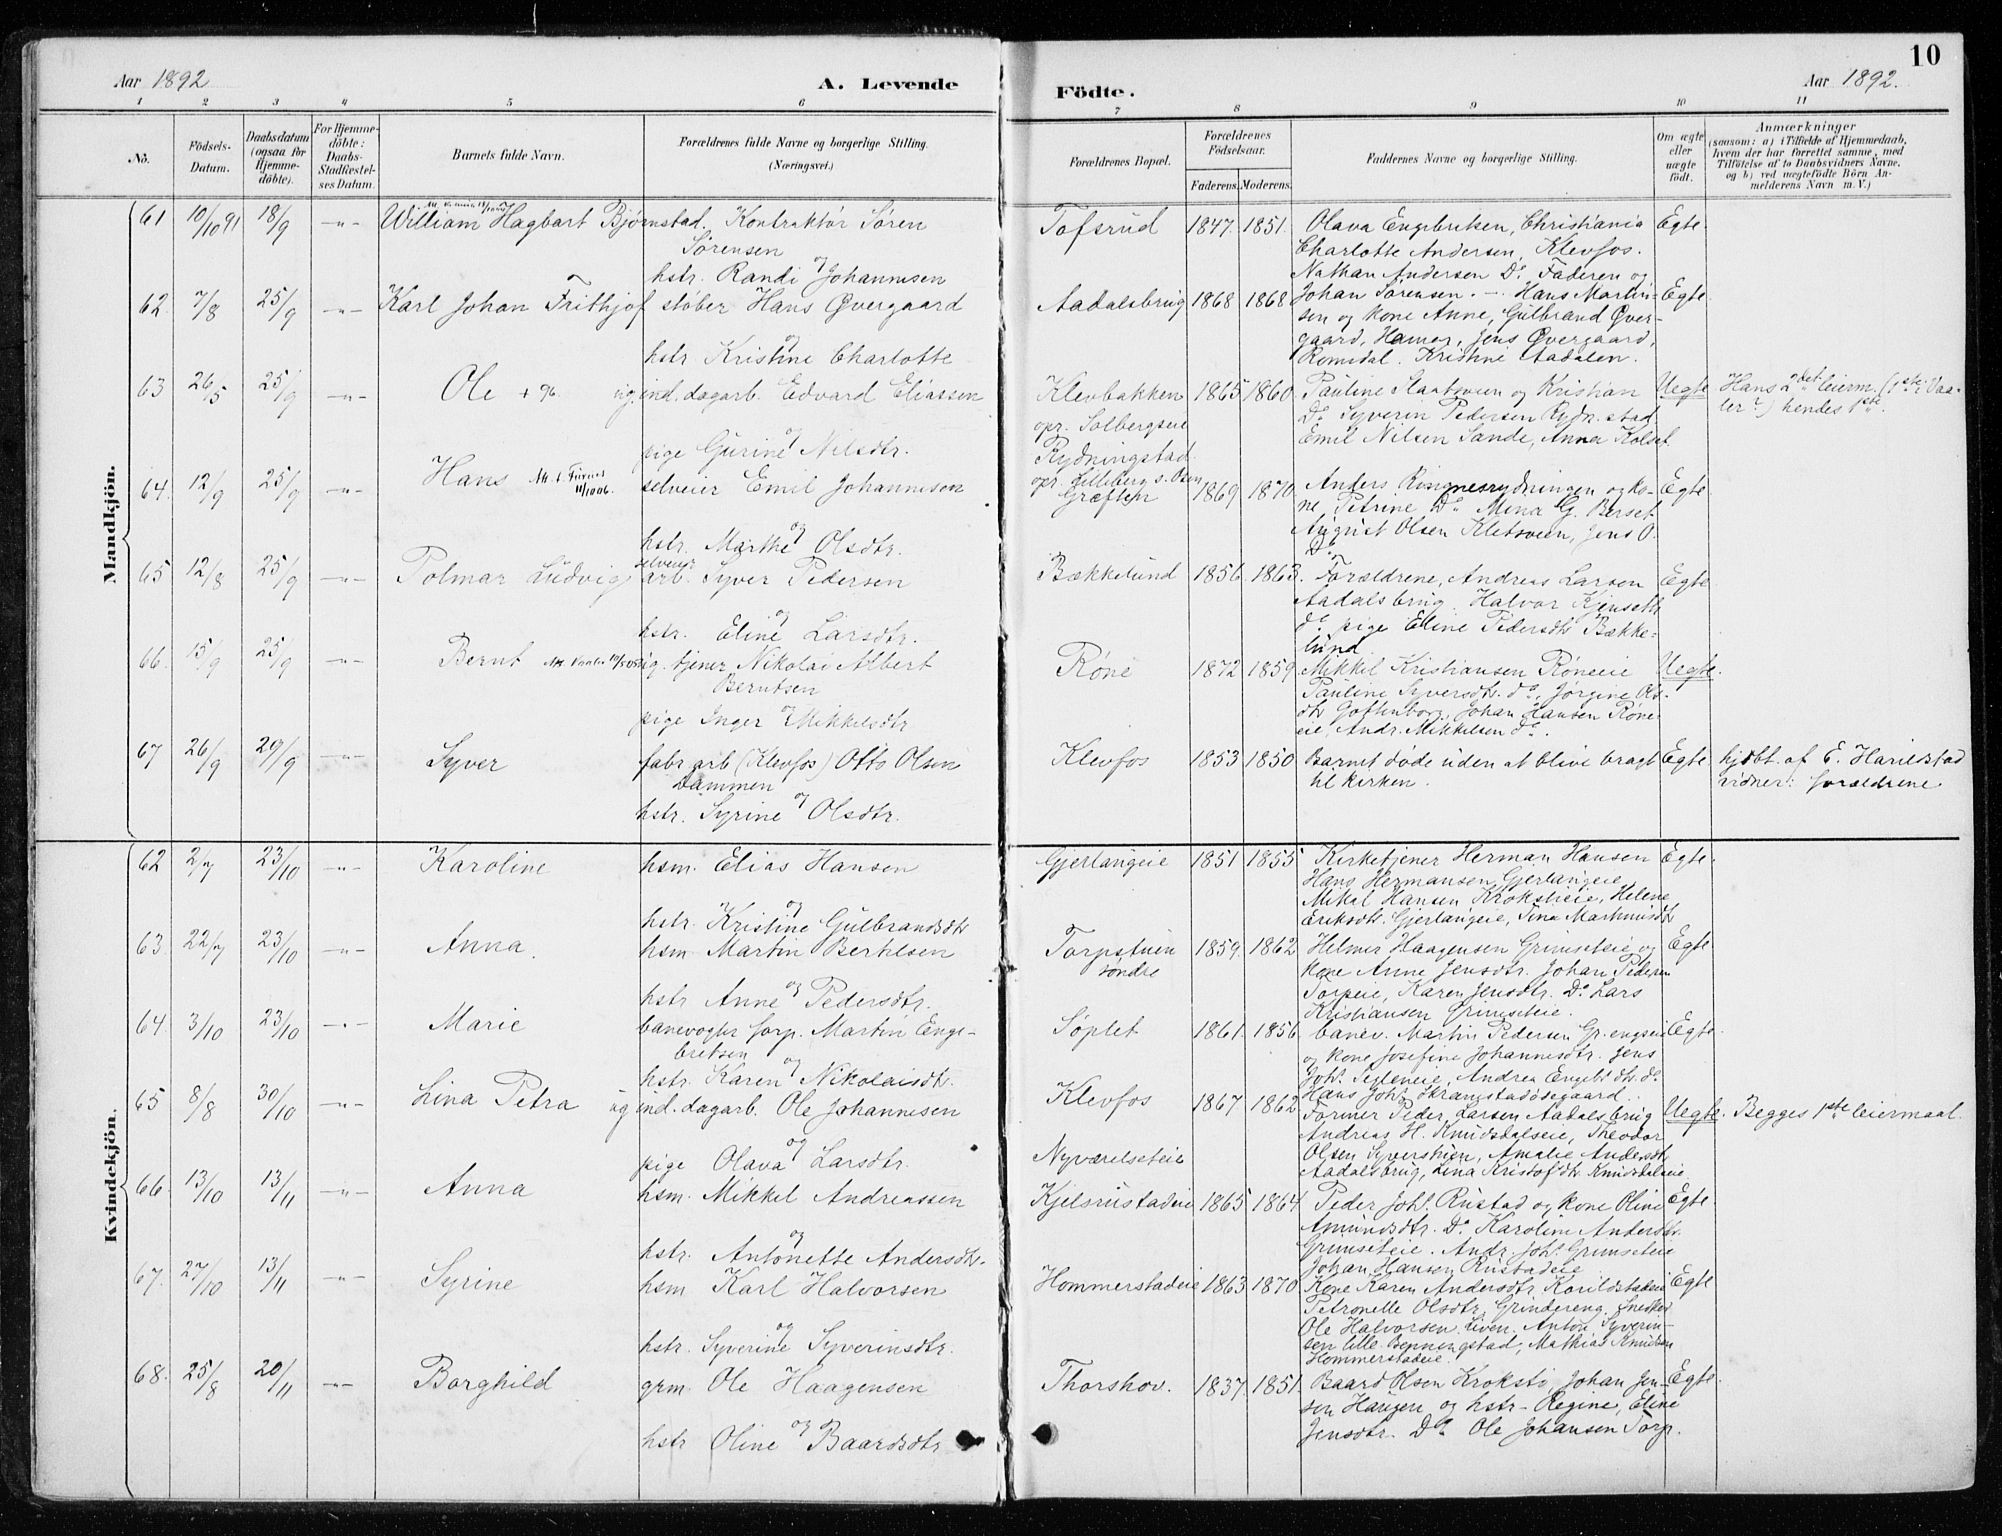 10
Aar 1892
A. Levende
Födte.
Aar 1892.
1 2 3 4 5 6 7 8 9 10 11
No.
Födsels-
Datum.
Daabsdatum
(ogsaa for
Hjemme-
döbte).
For Hjemme-
döbte:
Daabs-
Stadfæstel-
ses Datum.
Barnets fulde Navn.
Forældrenes fulde Navne og borgerlige Stilling.
(Næringsvei.)
Forældrenes Bopæl.
Forældrenes
Födselsaar.
Faderens. Moderens.
Faddernes Navne og borgerlige Stilling.
Om ægte
eller
uægte
födt.
Anmærkninger
(saasom: a) i Tilfælde af Hjemmedaab,
hvem der har forrettet samme, med
Tilföielse af to Daabsvidners Navne,
og b) ved uægtefödte Börn An-
melderens Navn m. V.)
Mandkjön.
61 10/10 91 18/9 -"- William Hagbart Bjørnstad. Kontraktør Søren
Sørensen
og
hstr. Randi Johannesen
Tofsrud 1847. 1851. Olava Engebretsen, Christiania Egte.
Charlotte Andersen, Klevfos.
Nathan Andersen Do Faderen og
Johan Sørensen. -
62. 7/8 25/9 -"- Karl Johan Frithjof støber Hans Øvergaard
og
hstr. Kristine Charlotte
Aadalsbrug 1868 1868 Hans Martin- Egte.
sen og kone Anne, Gulbrand Øver-
gaard, Hamar, Jens Øvergaard,
Romedal. Kristine Aadalen.
63 26/5 25/9 -"- Ole + 96. ug. ind. dagarb. Edvard Eliassen
og
pige Gurine Nilsdtr.
Klevbakken 1865 1860 Pauline Slaatsveen og Kristian Uegte
opr. Solbergseie
Rydningstad
opr. Lilleberg s. Osen
Do Syverin Pedersen Rydn.stad
Emil Nilsen Sande, Anna Kolset
Hans 2det leierm. (1ste i Vaa-
ler?) hendes 1ste.
64. 12/9 25/9 -"- Hans Att. t. Furnes
11/10 06.
selveier Emil Johannesen
og
hstr. Marthe Olsdtr.
Græften 1869 1870 Anders Ringnesrydningen og ko- Egte
ne Petrine Do Mina G. Berset
August Olsen Kletsveen, Jens O.
Do
65 12/8 25/9 -"- Polmar Ludvig
selveier
arb. Syver Pedersen
og
hstr. Eline Larsdtr.
Bækkelund 1856 1863. Forældrene, Andreas Larsen Egte
Aadalsbrug. Halvor Kjenseth
do pige Eline Pedersdtr Bække-
lund
66. 15/9 25/9 -"- Bernt ug. tjener Nikolai Albert
Berntsen
og
pige Inger Mikkelsdtr
Røne 1872 1859 Mikkel Kristiansen Røneeie Uegte.
Pauline Syversdtr. do, Jørgine Ols-
dtr Gottenborg, Johan Hansen Røne-
eie, Andr. Mikkelsen do.
67 26/9 29/9 -"- Syver fabr arb (Klevfos) Otto Olsen
Dammen
og
hstr. Syrine Olsdtr.
Klevfos 1853 1850 Barnet døde uden at blive bragt Egte
til kirken.
hjdbt. af E. Harildstad
vidner: forældrene
Kvindekjön.
62 2/7 23/10 -"- Karoline hsm. Elias Hansen
og
hstr. Kristine Gulbrandsdtr
Gjerlangeie 1851 1855 Kirketjener Herman Hansen Egte.
Hans Hermansen Gjerlangeie,
Mikal Hansen Kroksteie, Helene
Eriksdtr. Gjerlangeie, Tina
63. 22/7 23/10 -"- Anna. hsm Martin Bertelsen
og
hstr Anne Pedersdtr.
Torpstuen 1859. 1862. Helmer Haagensen Grimseteie og Egte
søndre
kone Anne Jensdtr. Johan Pedersen
Torpeie, Karen Jensdtr. Do Lars
Kristiansen Grimseteie.
64 3/10 23/10 -"- Marie banevogter forp. Martin Enge-
bretsen
og
hstr. Karen Nikolaisdtr.
Søplet 1861. 1856. banev. Martin Pedersen Egte.
og kone Josefine Johannesdtr. Jens
Joh. Andrea Engebr.dtr. do
Hans Joh.
65 8/8 30/10 -"- Lina Petra ug ind. dagarb. Ole Johannesen
og
pige Olava Larsdtr.
Klevfos 1867 1862 Former Peder Larsen Aadalsbrug Uegte. Begges 1ste leiermaal.
Nyværelseteie
Andreas H. Knudsdalseie, Theodor
Olsen Syverstuen, Amalie Andersdtr
Aadalsbrug, Lina Kristofdtr Knudsdaleie
66. 13/10 13/11 -"- Anna hsm. Mikkel Andreassen
og
hstr. Antonette Andersdtr.
Kjelsrustadeie 1865 1864 Peder Joh. Rustad og kone Oline Egte
Amundsdtr. Do Karoline Andersdtr.
Grimseteie. Andr. Joh. Grimseteie
Johan Hansen Rustadeie
67. 27/10 13/11 -"- Syrine hsm Karl Halvorsen
og
hstr. Syverine Syverinsdtr.
Hommerstadeie 1863 1870. Kone Karen Andersdtr. Egte
Petronelle Olsdtr. Grindereng. Snedker
Ole Halvorsen Anton Syverin-
sen lille Mathias Knudsen
Hommerstadeie.
68. 25/8 20/11 -"- Borghild grm. Ole Haagensen
og
hstr Oline Baardsdtr.
Thorshov. 1837. 1851. Baard Olsen Kroksti, Johan Jen- Egte.
sen Haugen og hstr- Regine, Eline
Jensdtr. Do Ole Johansen Torp.